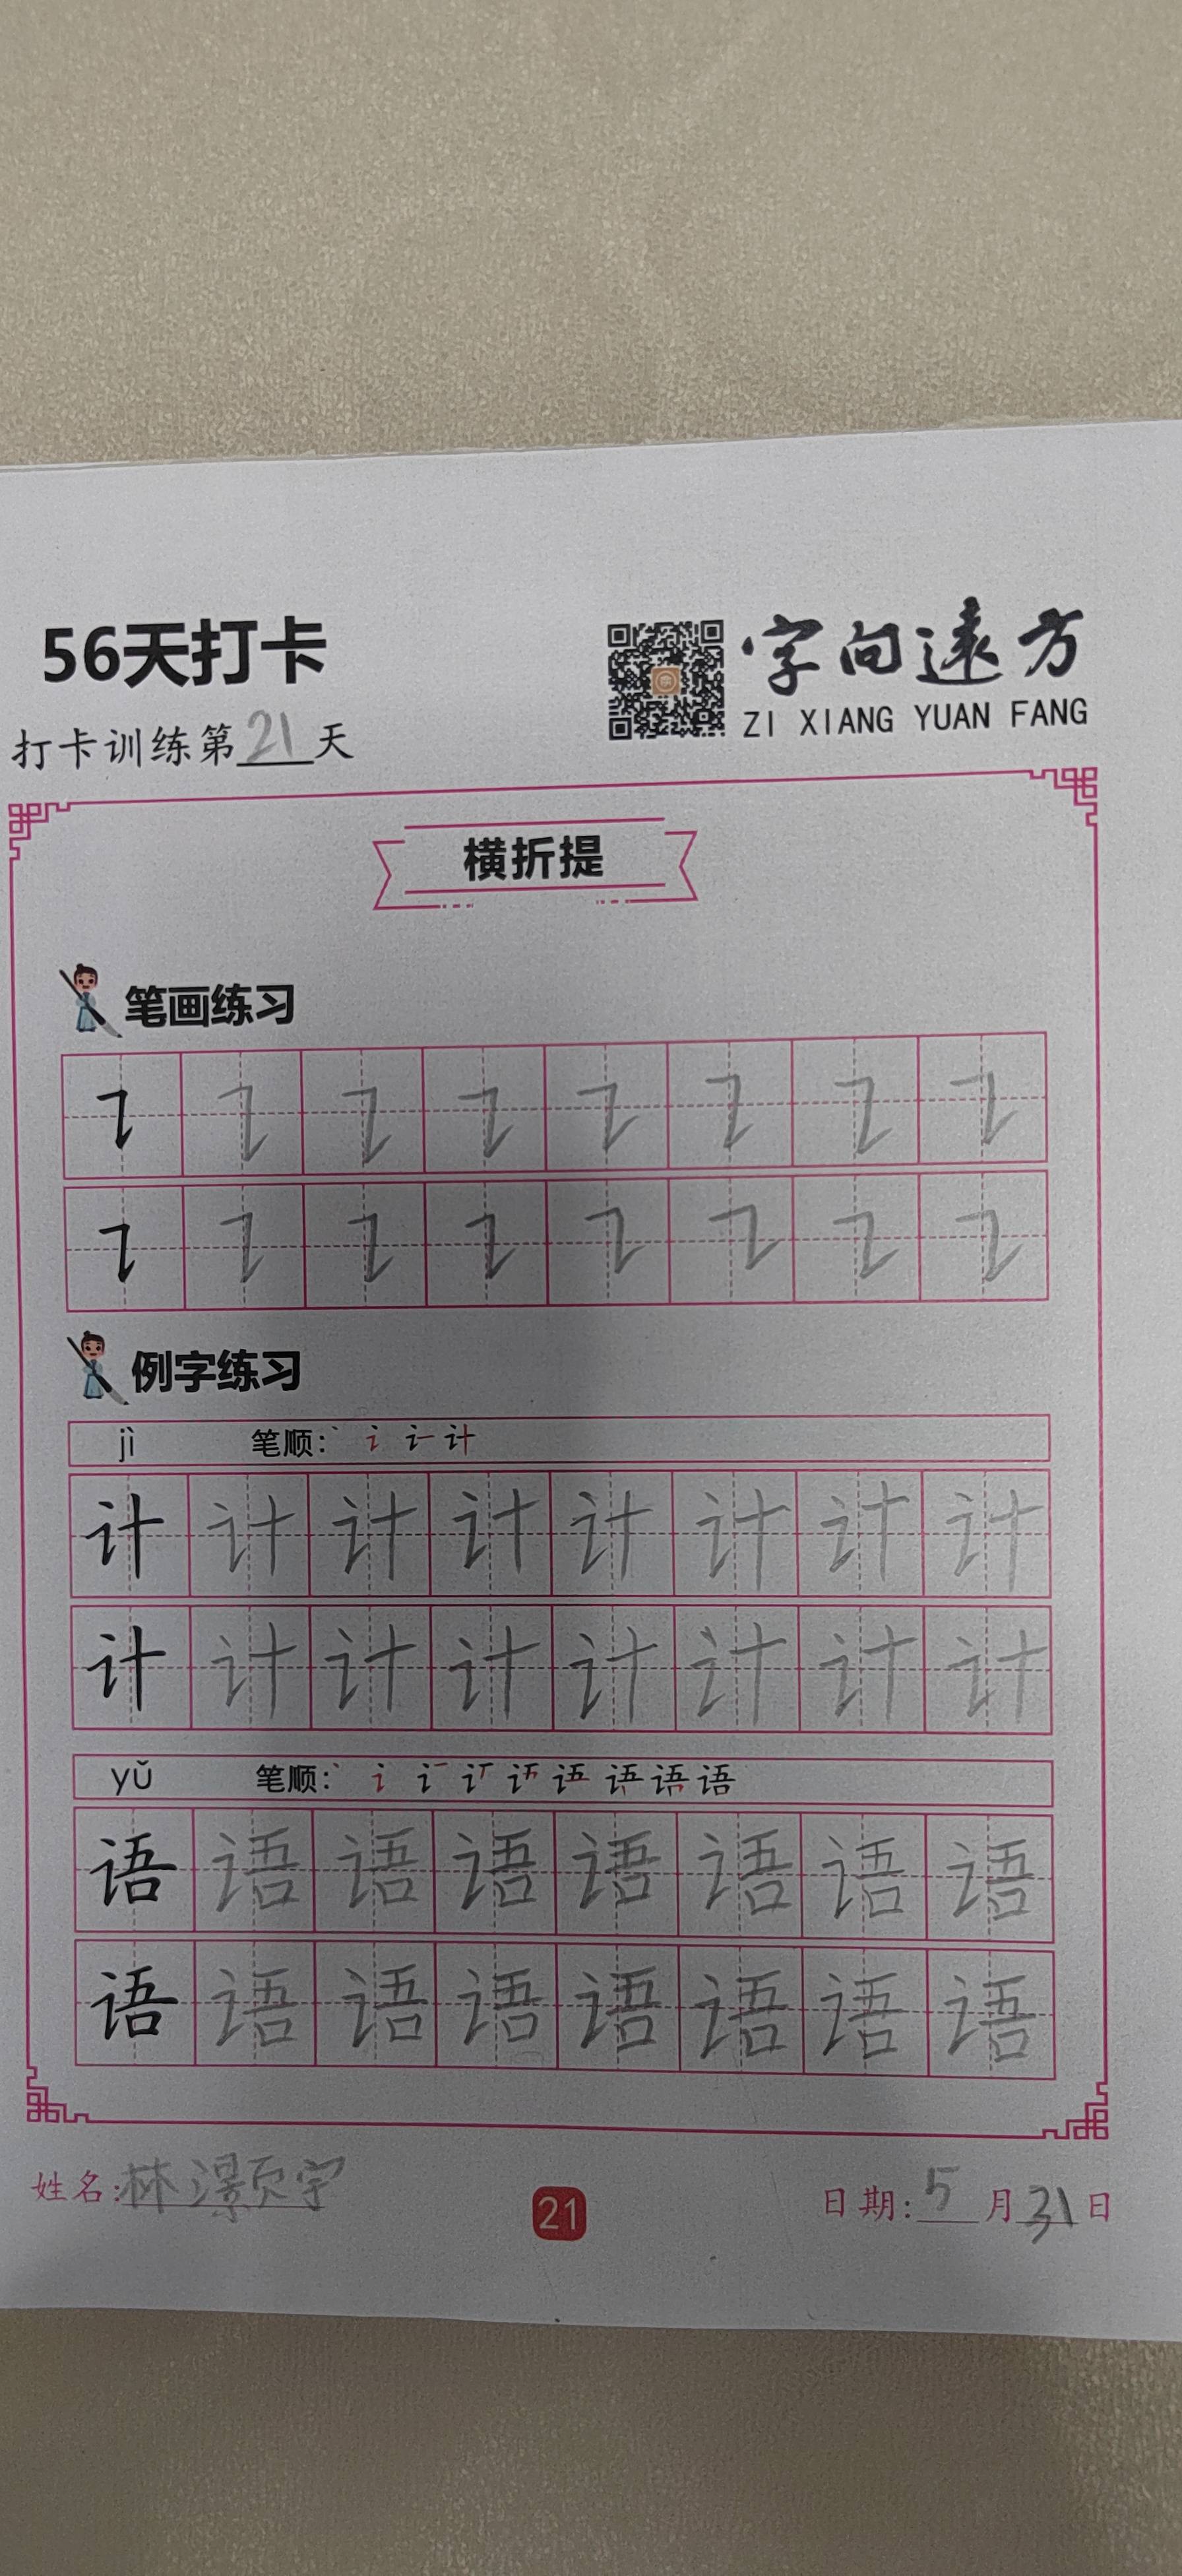 56天打卡
字向遠方
ZI XIANG YUAN FANG
打卡训练第21天
横折提
笔画练习
例字练习
jì 笔顺: 计
计 计 计 计 计 计 计 计
计 计 计 计 计 计 计 计
yǔ 笔顺: 语
语 语 语 语 语 语 语 语
语 语 语 语 语 语 语 语
姓名:林灏宇
21
日期:5月31日